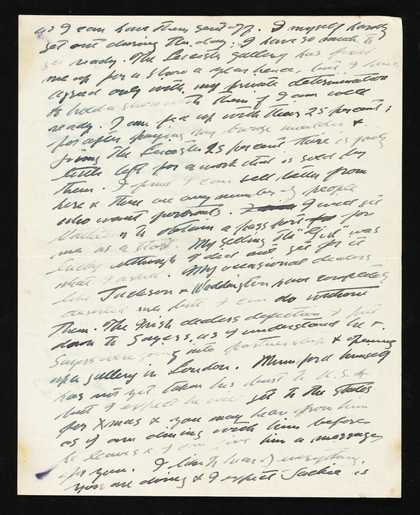 as I can have them sent off. I myself hardly
get out during the day; I have so much to
get ready. The Leicester gallery has
me up for a show a year hence, but I have
agreed only with my private determination
to hold a show with them if I am well
ready. I am fed up with their 25 percent;
for after paying my bronze &
giving the Leicester 25 percent there is jolly
little left for a work that is sold by
them. I find I can sell better from
here & there are any number of people
who want portraits. I must get
to obtain a passport for
me as a start. My selling the "Girl" was
lucky although I did not get for it
what I asked. My occasional dealers
like Jackson & Waddington have completely
deserted me, but I can do without
them. The Irish dealers defection I put
down to Sayers, as I understand he &
Sayers were going into partnership & opening
up a gallery in London. Mumford himself
has not yet taken his bust to U.S.A
but I expect he will get to the States
for Xmas & you may hear from him
as I am dining with him before
he leaves & I can give him a message
for you. I like to hear of everything
you are doing & I expect Jackie is